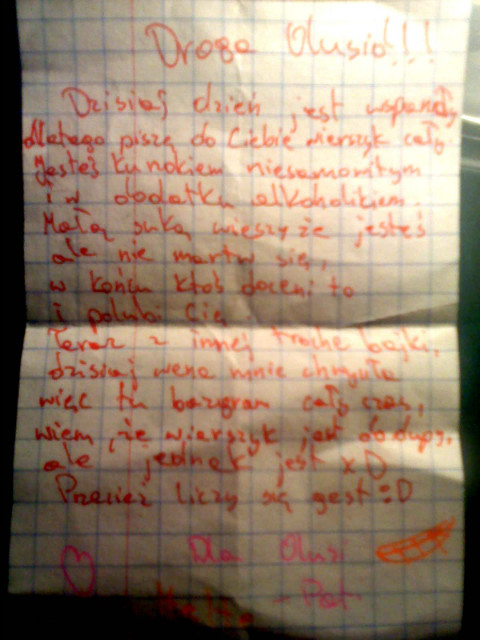 Droga Olusiu!!!
Dzisiaj dzień jest wspaniały
dlatego piszę do Ciebie wierszyk cały.
Jesteś kurwokiem niesamowitym
i w dodatku alkoholikiem.
Małą suką wiesz, że jesteś
ale nie martw się,
w końcu ktoś doceni to
i polubi Cię.
Teraz z innej trochę bajki,
dzisiaj wena mnie chwyciła
więc tu bazgram cały czas,
wiem, że wierszyk jest do dupy,
ale jednak jest xD
Przecież liczy się gest :D
Dla Olus